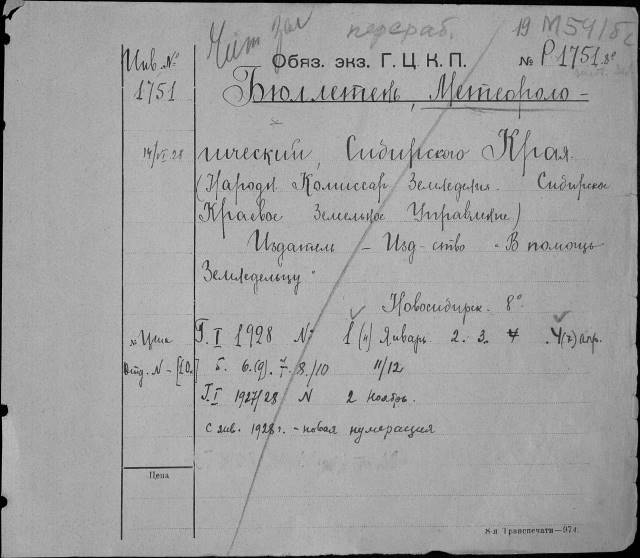 Чит зал перераб. 19 М 591/5 с
Инв №
Обяз. экз. Г.Ц.К.П. № Р1751 8°
1751
Бюллетень, Метеороло-
14/VI 28
гический, Сибирского Края.
(Народн. Комиссар. Земледелия. Сибирское
Краевое Земельное Управление)
Издатель - Изд-ство "В помощь
Земледельцу"
Новосибирск. 8°.
Цена
Г. I 1928 № 1 (4) Январь 2. 3. 4 . 4(7) апр.
Отд. N - [10.]
5. 6.(9). 7. 8./10 11/12
Г. I 1927/28 N 2 ноябрь.
с янв. 1928 г. - новая нумерация
Цена
8-я Транспечати—974.